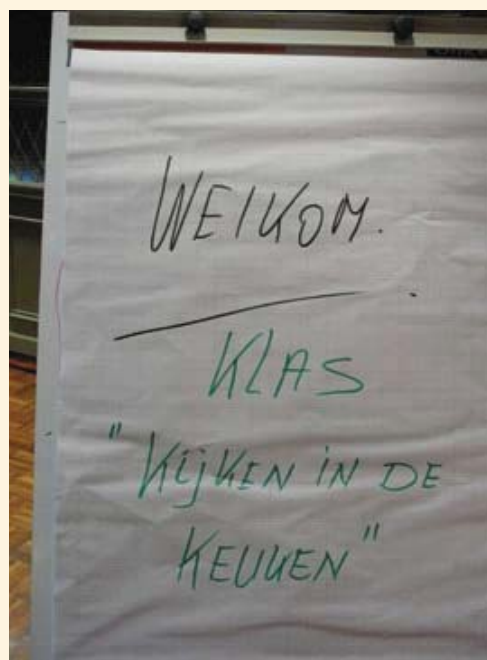 WELKOM.
KLAS
"KIJKEN IN DE
KEUKEN"